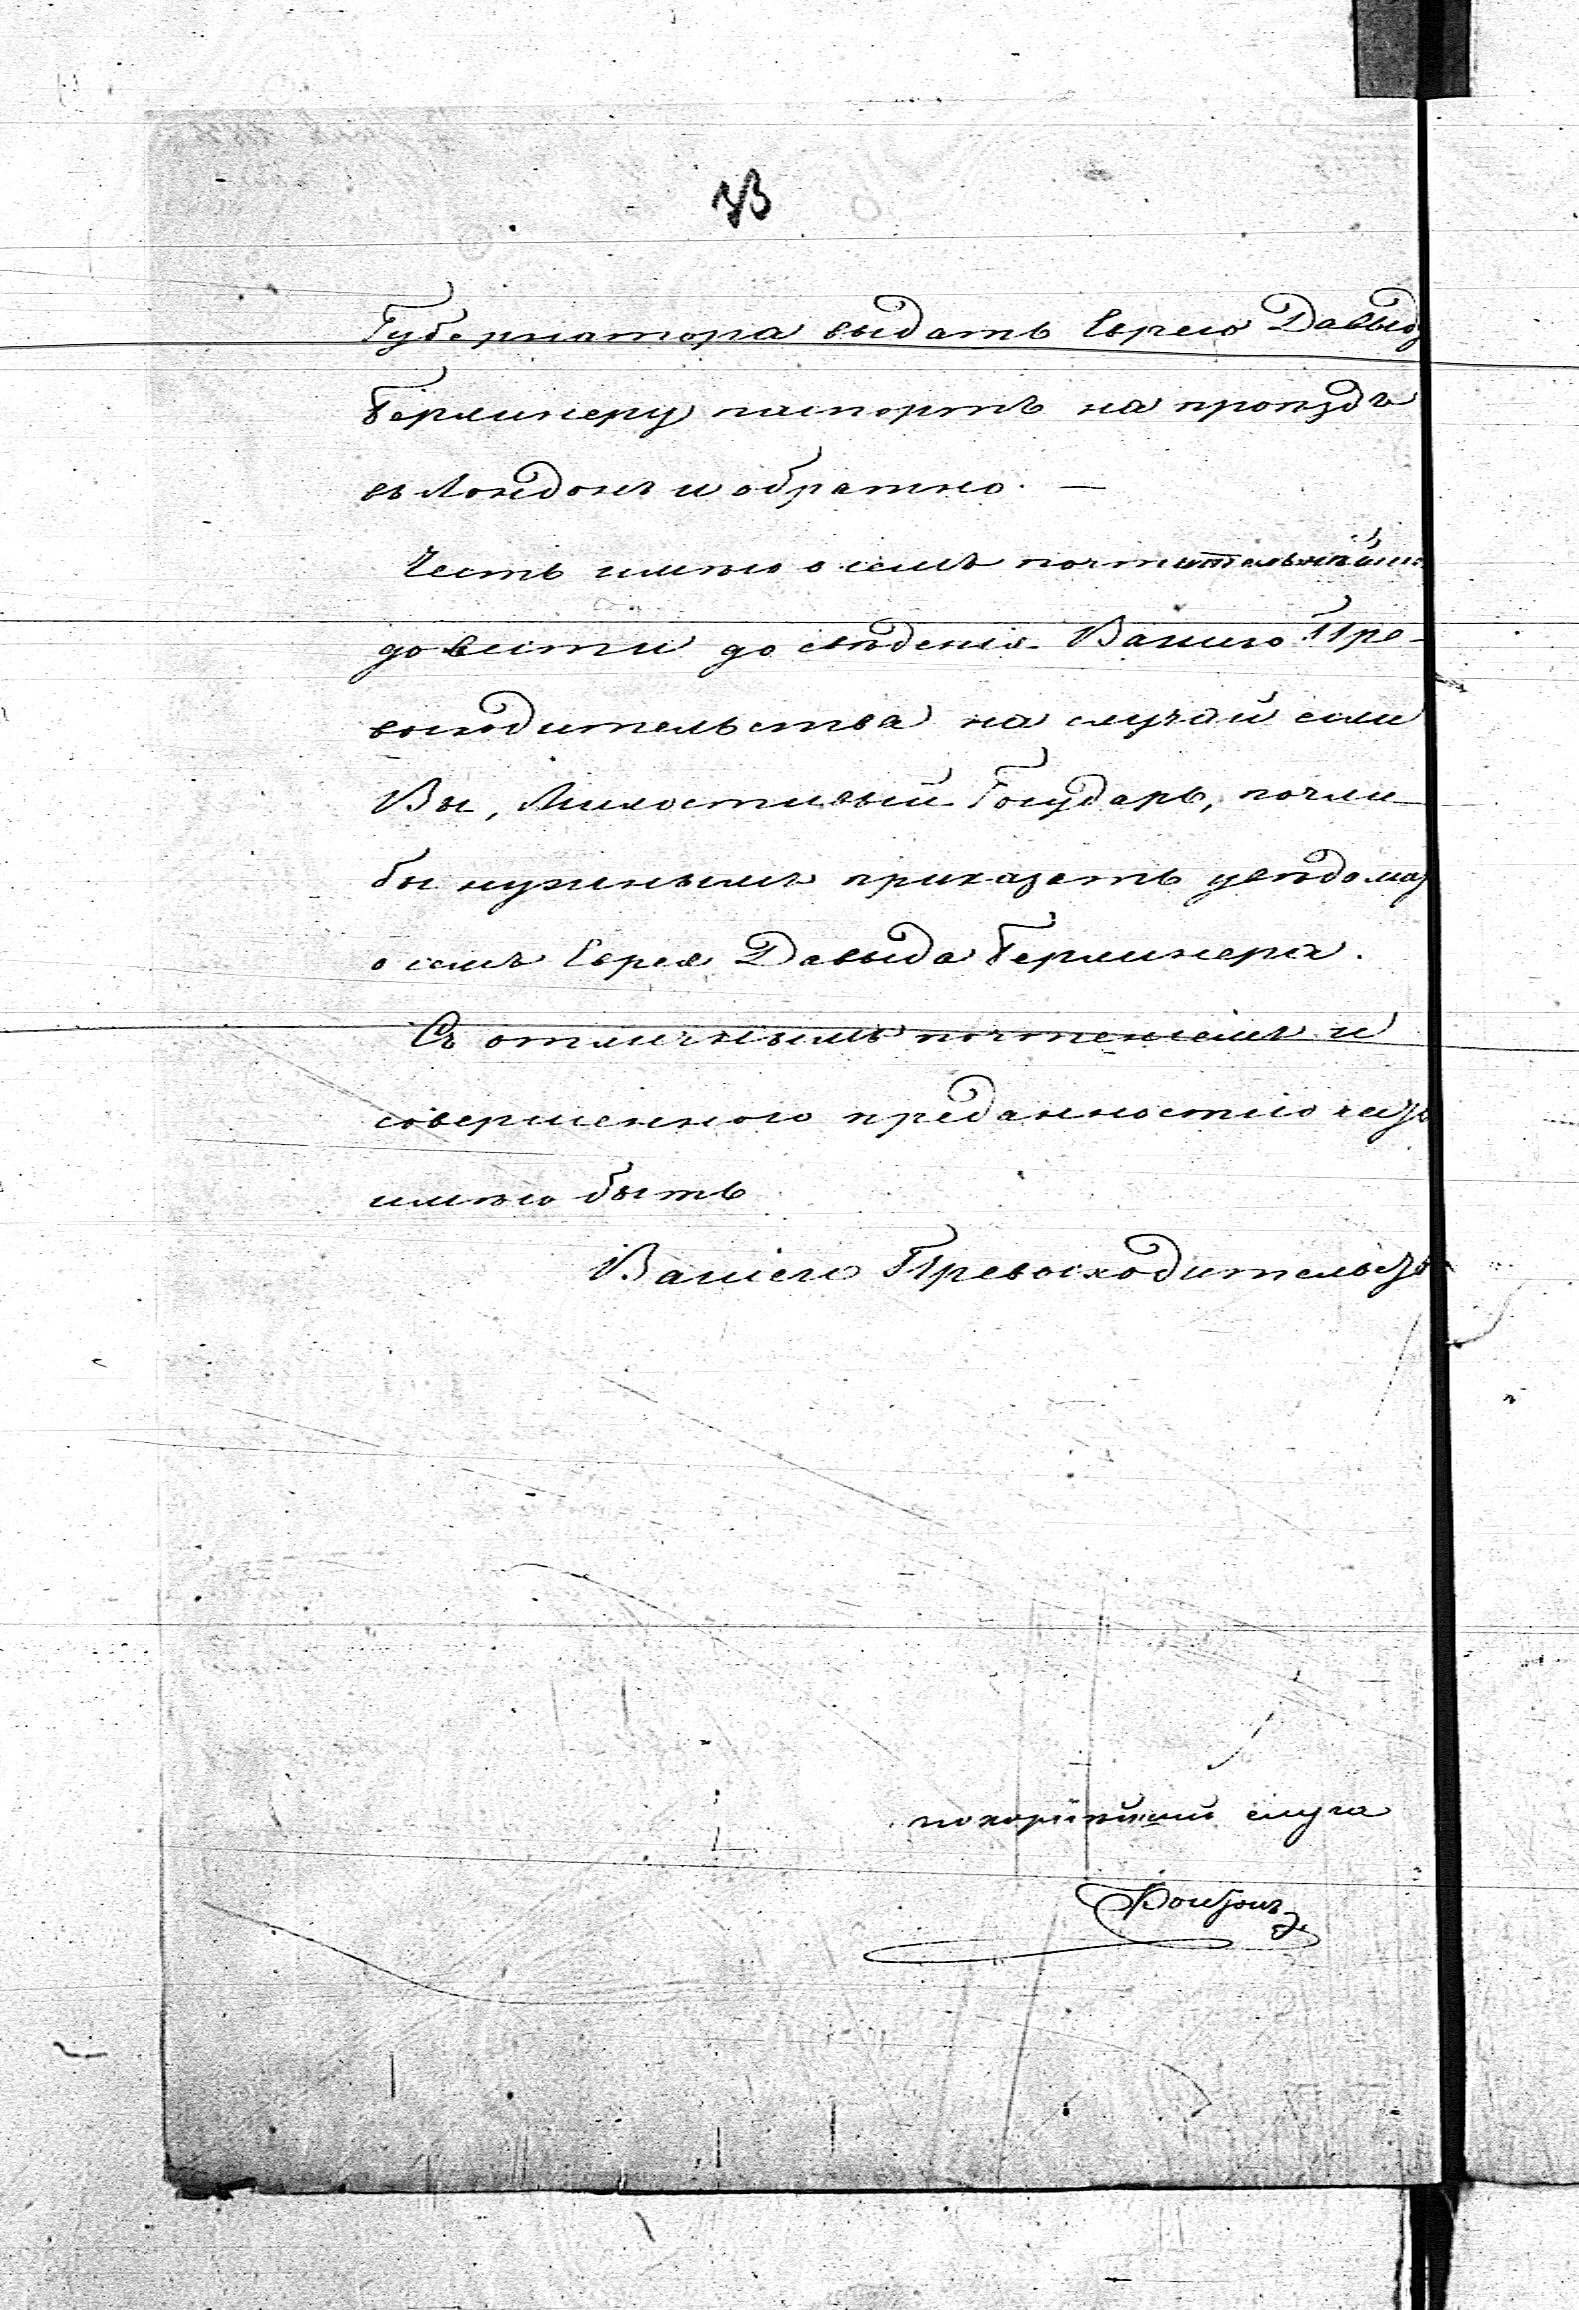 Губернатора выдать Еврею Давыд
Берлинеру паспортъ на проѣздъ
въ Лондонъ и обратно. —
Честь имѣю о семъ почтительнѣйше
довести до свѣденія Вашего Пре-
восходительства на случай если
Вы, Милостивый Государь, почли
бы нужнымъ приказать увѣдомить
о семъ Еврея Давыда Берлинера.
Съ отличнымъ почтеніемъ и
совершенною преданностію честь
имѣю быть
Вашего Превосходительства
покорнѣйшій слуга